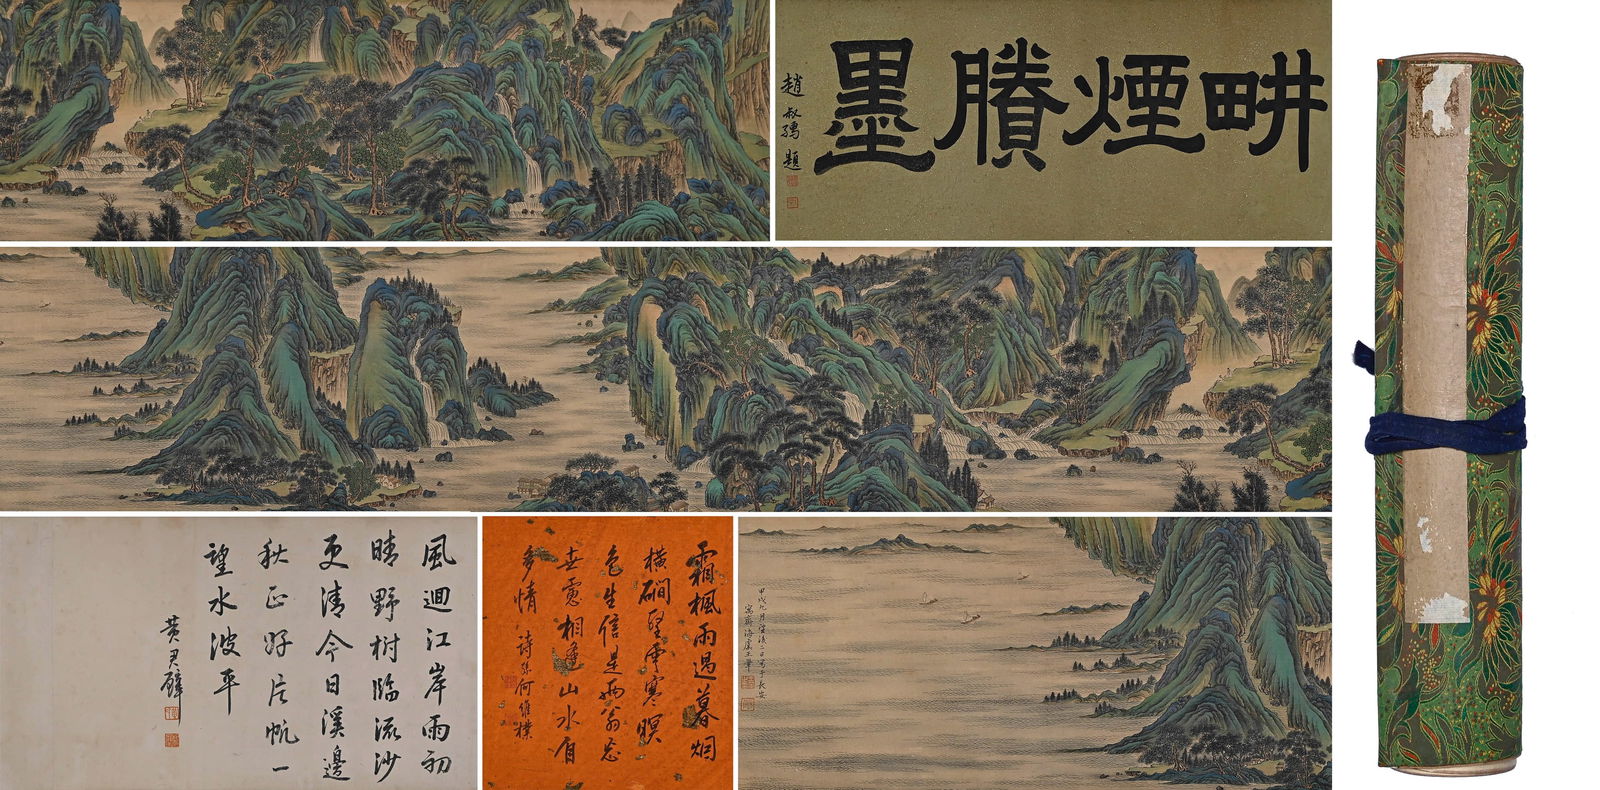 畊煙賸墨
趙叔孺題
霜楓雨過暮烟
橫磵壁雲寒暝
色生信是兩翁忘
世慮相逢山水
多情
詩孫何維樸
甲戌九月望後二日寫于長安
寓齋海虞王翬
風迴江岸雨初
晴野樹臨流沙
更清今日溪邊
秋正好片帆一
望水波平
黃君璧